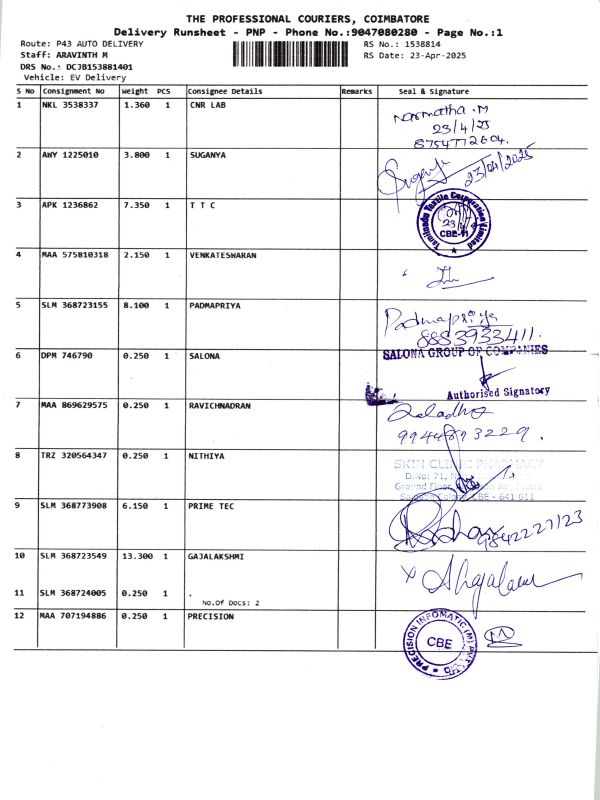 THE PROFESSIONAL COURIERS, COIMBATORE
Delivery Runsheet - PNP - Phone No.:9047080280 - Page No.:1
Route: P43 AUTO DELIVERY RS No.: 1538814
Staff: ARAVINTH M RS Date: 23-Apr-2025
DRS No.: DCJB153881401
Vehicle: EV Delivery
S No Consignment No Weight PCS Consignee Details Remarks Seal & Signature
1 NKL 3538337 1.360 1 CNR LAB
Narmatha .M
23/4/25
8754772604.
2 AWY 1225010 3.800 1 SUGANYA
23/04/2025
3 APK 1236862 7.350 1 T T C
Tamilnadu Textile Corporation Limited
CBE-11
4 MAA 575810318 2.150 1 VENKATESWARAN
5 SLM 368723155 8.100 1 PADMAPRIYA
Padmapriya
8883933411.
6 DPM 746790 0.250 1 SALONA
SALONA GROUP OF COMPANIES
Authorised Signatory
7 MAA 869629575 0.250 1 RAVICHNADRAN
9944893229.
8 TRZ 320564347 0.250 1 NITHIYA
SKIN CLINIC PHARMACY
D.No: 71,
Ground Floor,
CBE - 641 011
9 SLM 368773908 6.150 1 PRIME TEC
9842227123
10 SLM 368723549 13.300 1 GAJALAKSHMI
11 SLM 368724005 0.250 1 .
No.Of Docs: 2
12 MAA 707194886 0.250 1 PRECISION
PRECISION INFOMATIC (M) PVT LTD
CBE